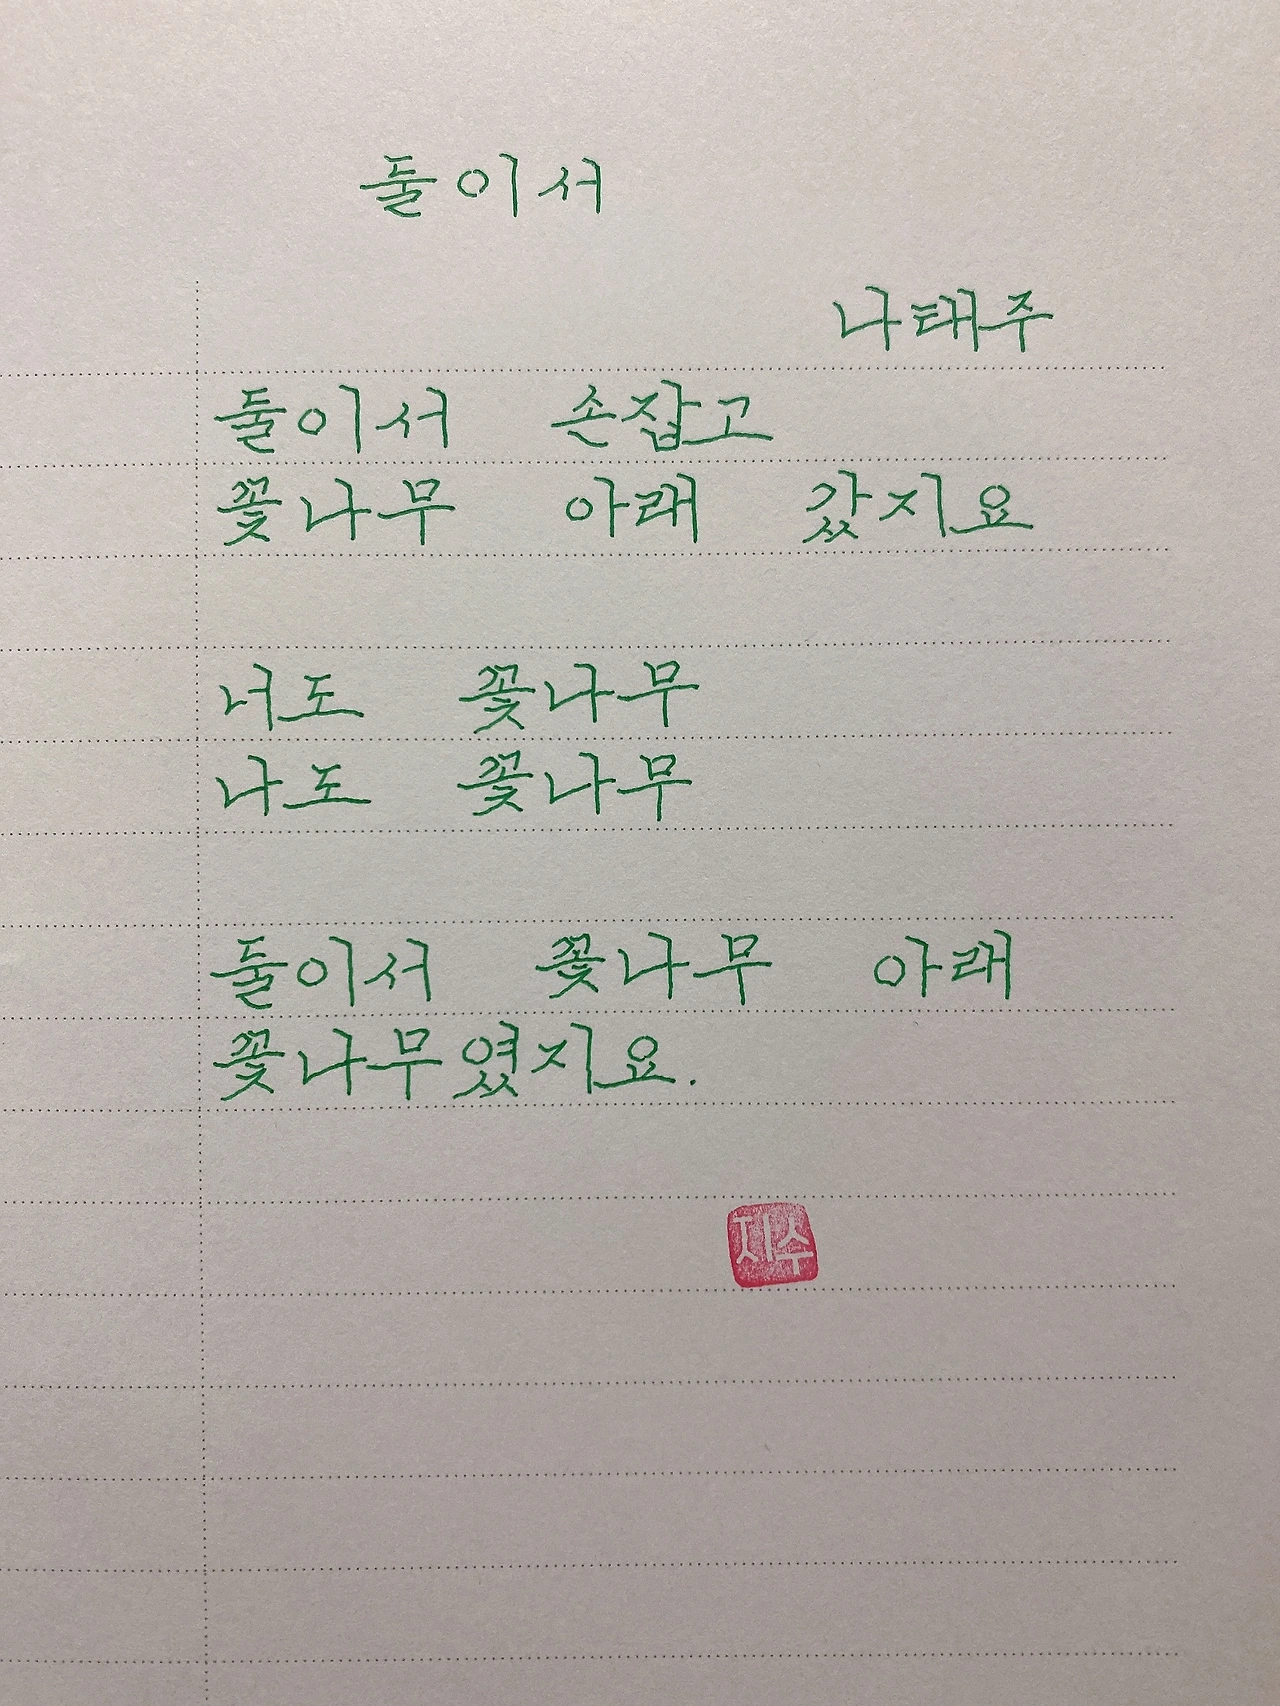 둘이서
나태주
둘이서 손잡고
꽃나무 아래 갔지요
너도 꽃나무
나도 꽃나무
둘이서 꽃나무 아래
꽃나무였지요.
지수